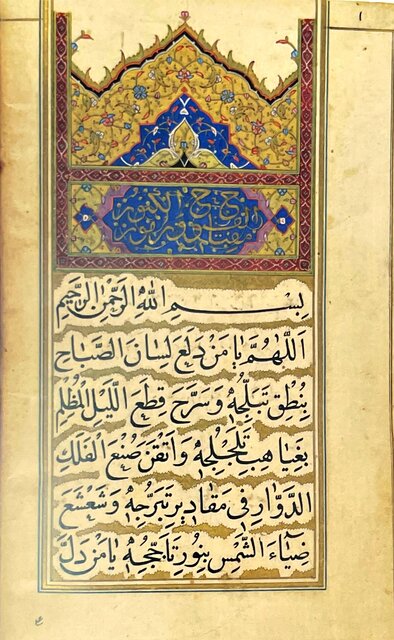 ١
بِسْمِ اللهِ الرَّحْمٰنِ الرَّحِيْمِ
اَللّٰهُمَّ يَا مَنْ دَلَعَ لِسَانَ الصَّبَاحِ
بِنُطْقِ تَبَلُّجِهٖ وَسَرَّحَ قِطَعَ اللَّيْلِ الْمُظْلِمِ
بِغَيَاهِبِ تَلَجْلُجِهٖ وَاَتْقَنَ صُنْعَ الْفَلَكِ
الدَّوَّارِ فِي مَقَادِيرِ تَبَرُّجِهٖ وَشَعْشَعَ
ضِيَآءَ الشَّمْسِ بِنُورِ تَاَجُّجِهٖ يَا مَنْ دَلَّ